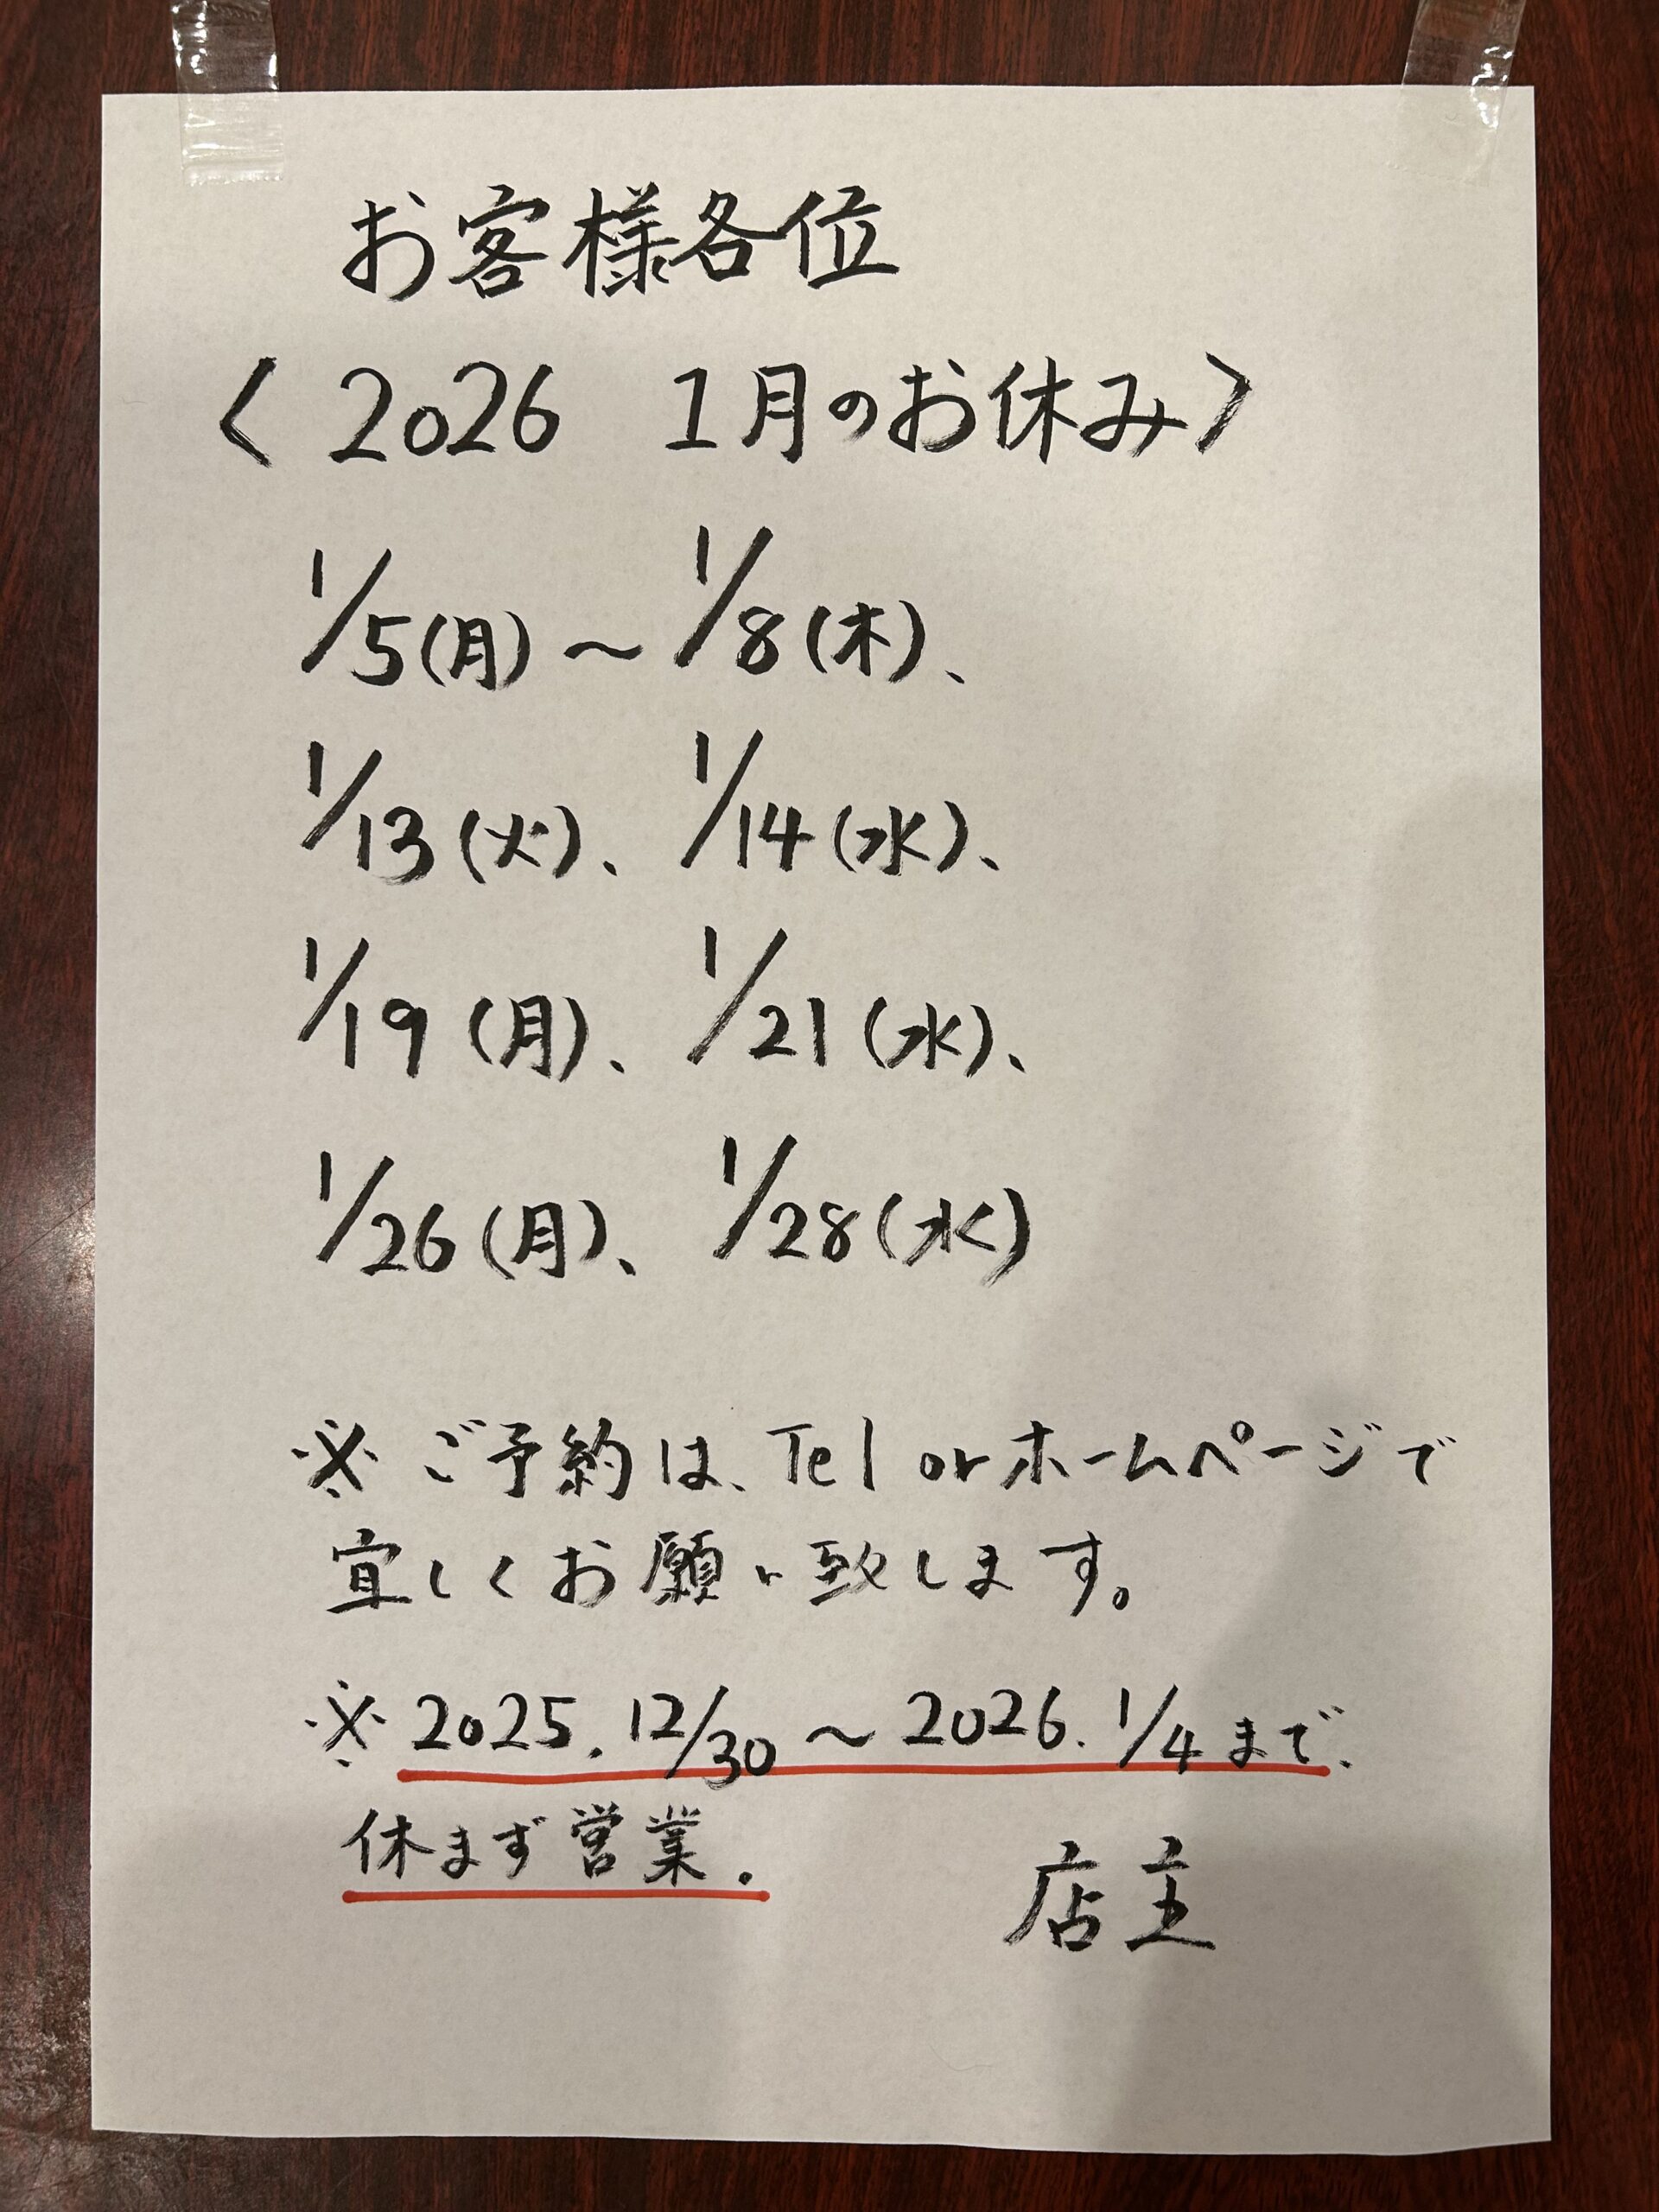 お客様各位
〈 2026 1月のお休み〉
1/5(月)～1/8(木)、
1/13(火)、1/14(水)、
1/19(月)、1/21(水)、
1/26(月)、1/28(水)
※ご予約は、Tel orホームページで
宜しくお願い致します。
※2025.12/30～2026.1/4まで、
休まず営業.
店主